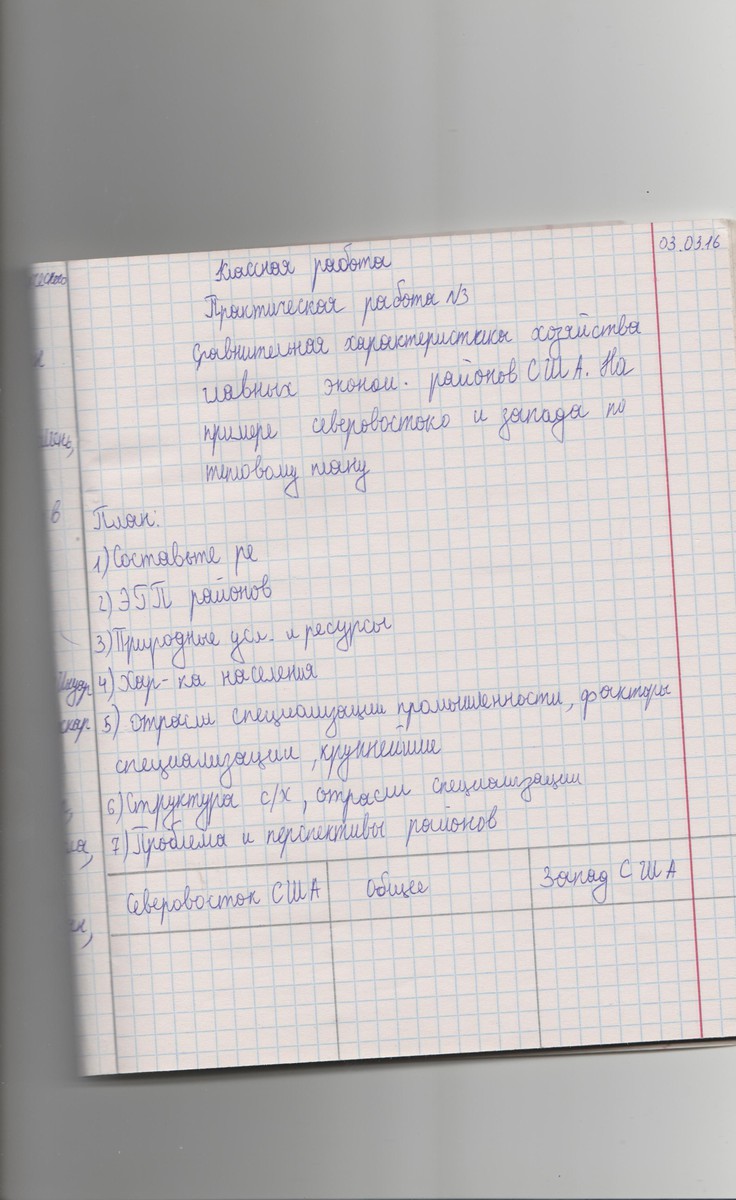 03.03.16
Классная работа
Практическая работа №3
Сравнительная характеристика хозяйства
главных эконом. районов США. На
примере северовостоко и запада по
типовому плану
План:
1) Составьте ре
2) ЭГП районов
3) Природные усл. и ресурсы
4) Хар-ка населения
5) отрасли специализации промышленности, факторы
специализации, крупнейшие
6) Структура с/х, отрасли специализации
7) Проблема и перспективы районов
Северовосток США Общее Запад США
в